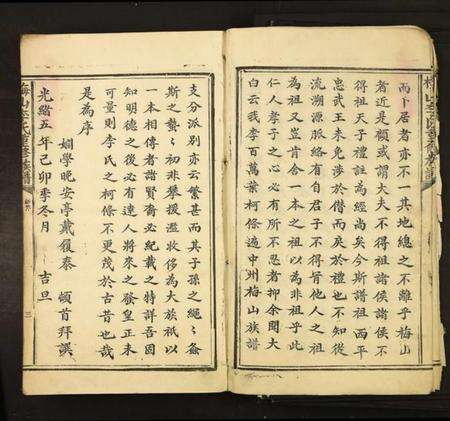 而卜居者亦不一其地總之不離乎梅山
者近是顧或謂大夫不得祖諸侯諸侯不
得祖天子禮註為經尚矣今斯譜祖西平
忠武王未免涉於僭而戾於禮也不知從
流溯源脈絡有自君子不得膋他人之祖
為祖又豈肯舍一本之祖以為非祖乎此
仁人孝子之心必有所不忍者抑余聞大
白云我李百萬葉柯條遍中州梅山族譜
支分派別亦云繁甚而其子孫之繩繩螽
斯之蟄蟄初非攀援濫收侈為大族祇以
一本相傳者諸賢裔必紀載之特詳吾因
知明德之後必有達人將來之發皇正未
可量則李氏之柯條不更茂於古昔也哉
是為序
姻學晚安亭戴履泰 頓首拜譔
光緒五年己卯季冬月 吉旦
梅山李氏
三